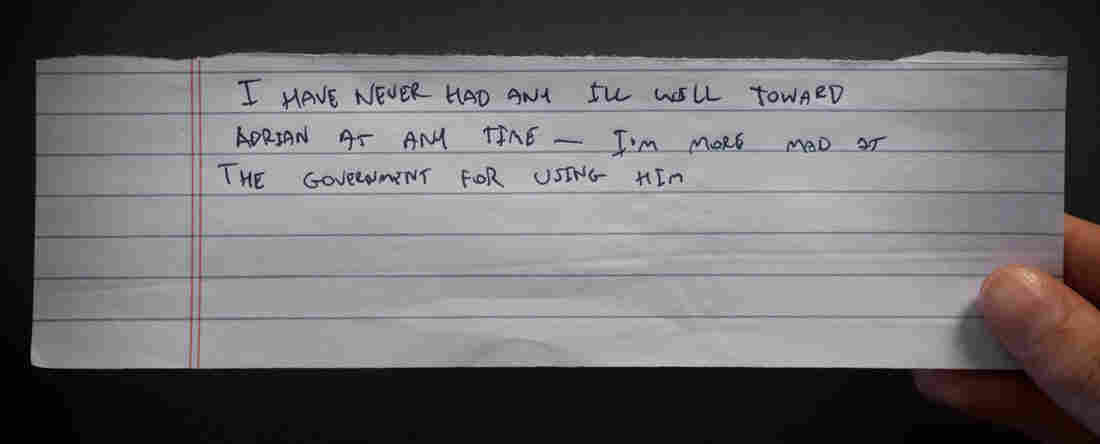 I HAVE NEVER HAD ANY ILL WILL TOWARD
ADRIAN AT ANY TIME — I'M MORE MAD AT
THE GOVERNMENT FOR USING HIM